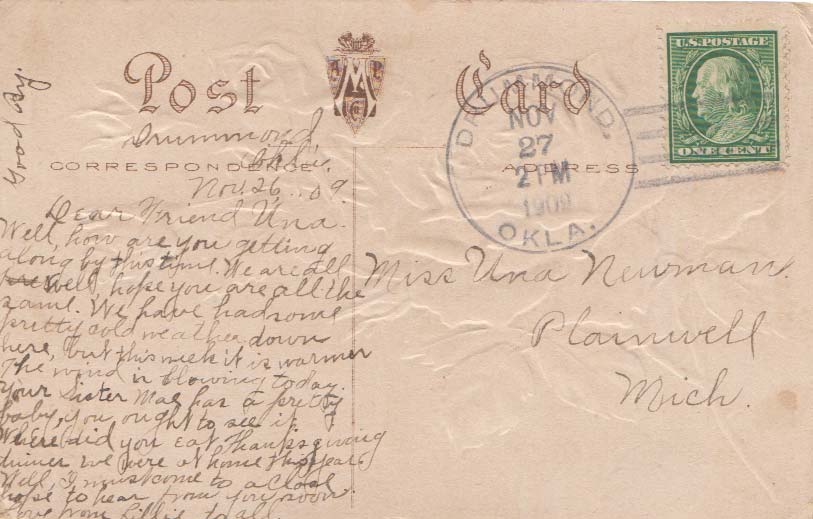 Post Card
CORRESPONDENCE
ADDRESS
U.S. POSTAGE
ONE CENT
DRUMMOND,
NOV
27
2 PM
1909
OKLA.
Good By.
Drummond
Okla.
Nov. 26, .. 09.
Dear Friend Una.
Well, how are you getting
along by this time. We are all
well, hope you are all the
same. We have had some
pretty cold weather down
here, but this week it is warmer
The wind is blowing today.
Your Sister Mae has a pretty
baby, you ought to see it.
Where did you eat thanksgiving
dinner we were at home this year.
Well, I must come to a close
hope to hear from you soon.
Love from Lillie to all
Miss Una Newman.
Plainwell
Mich.